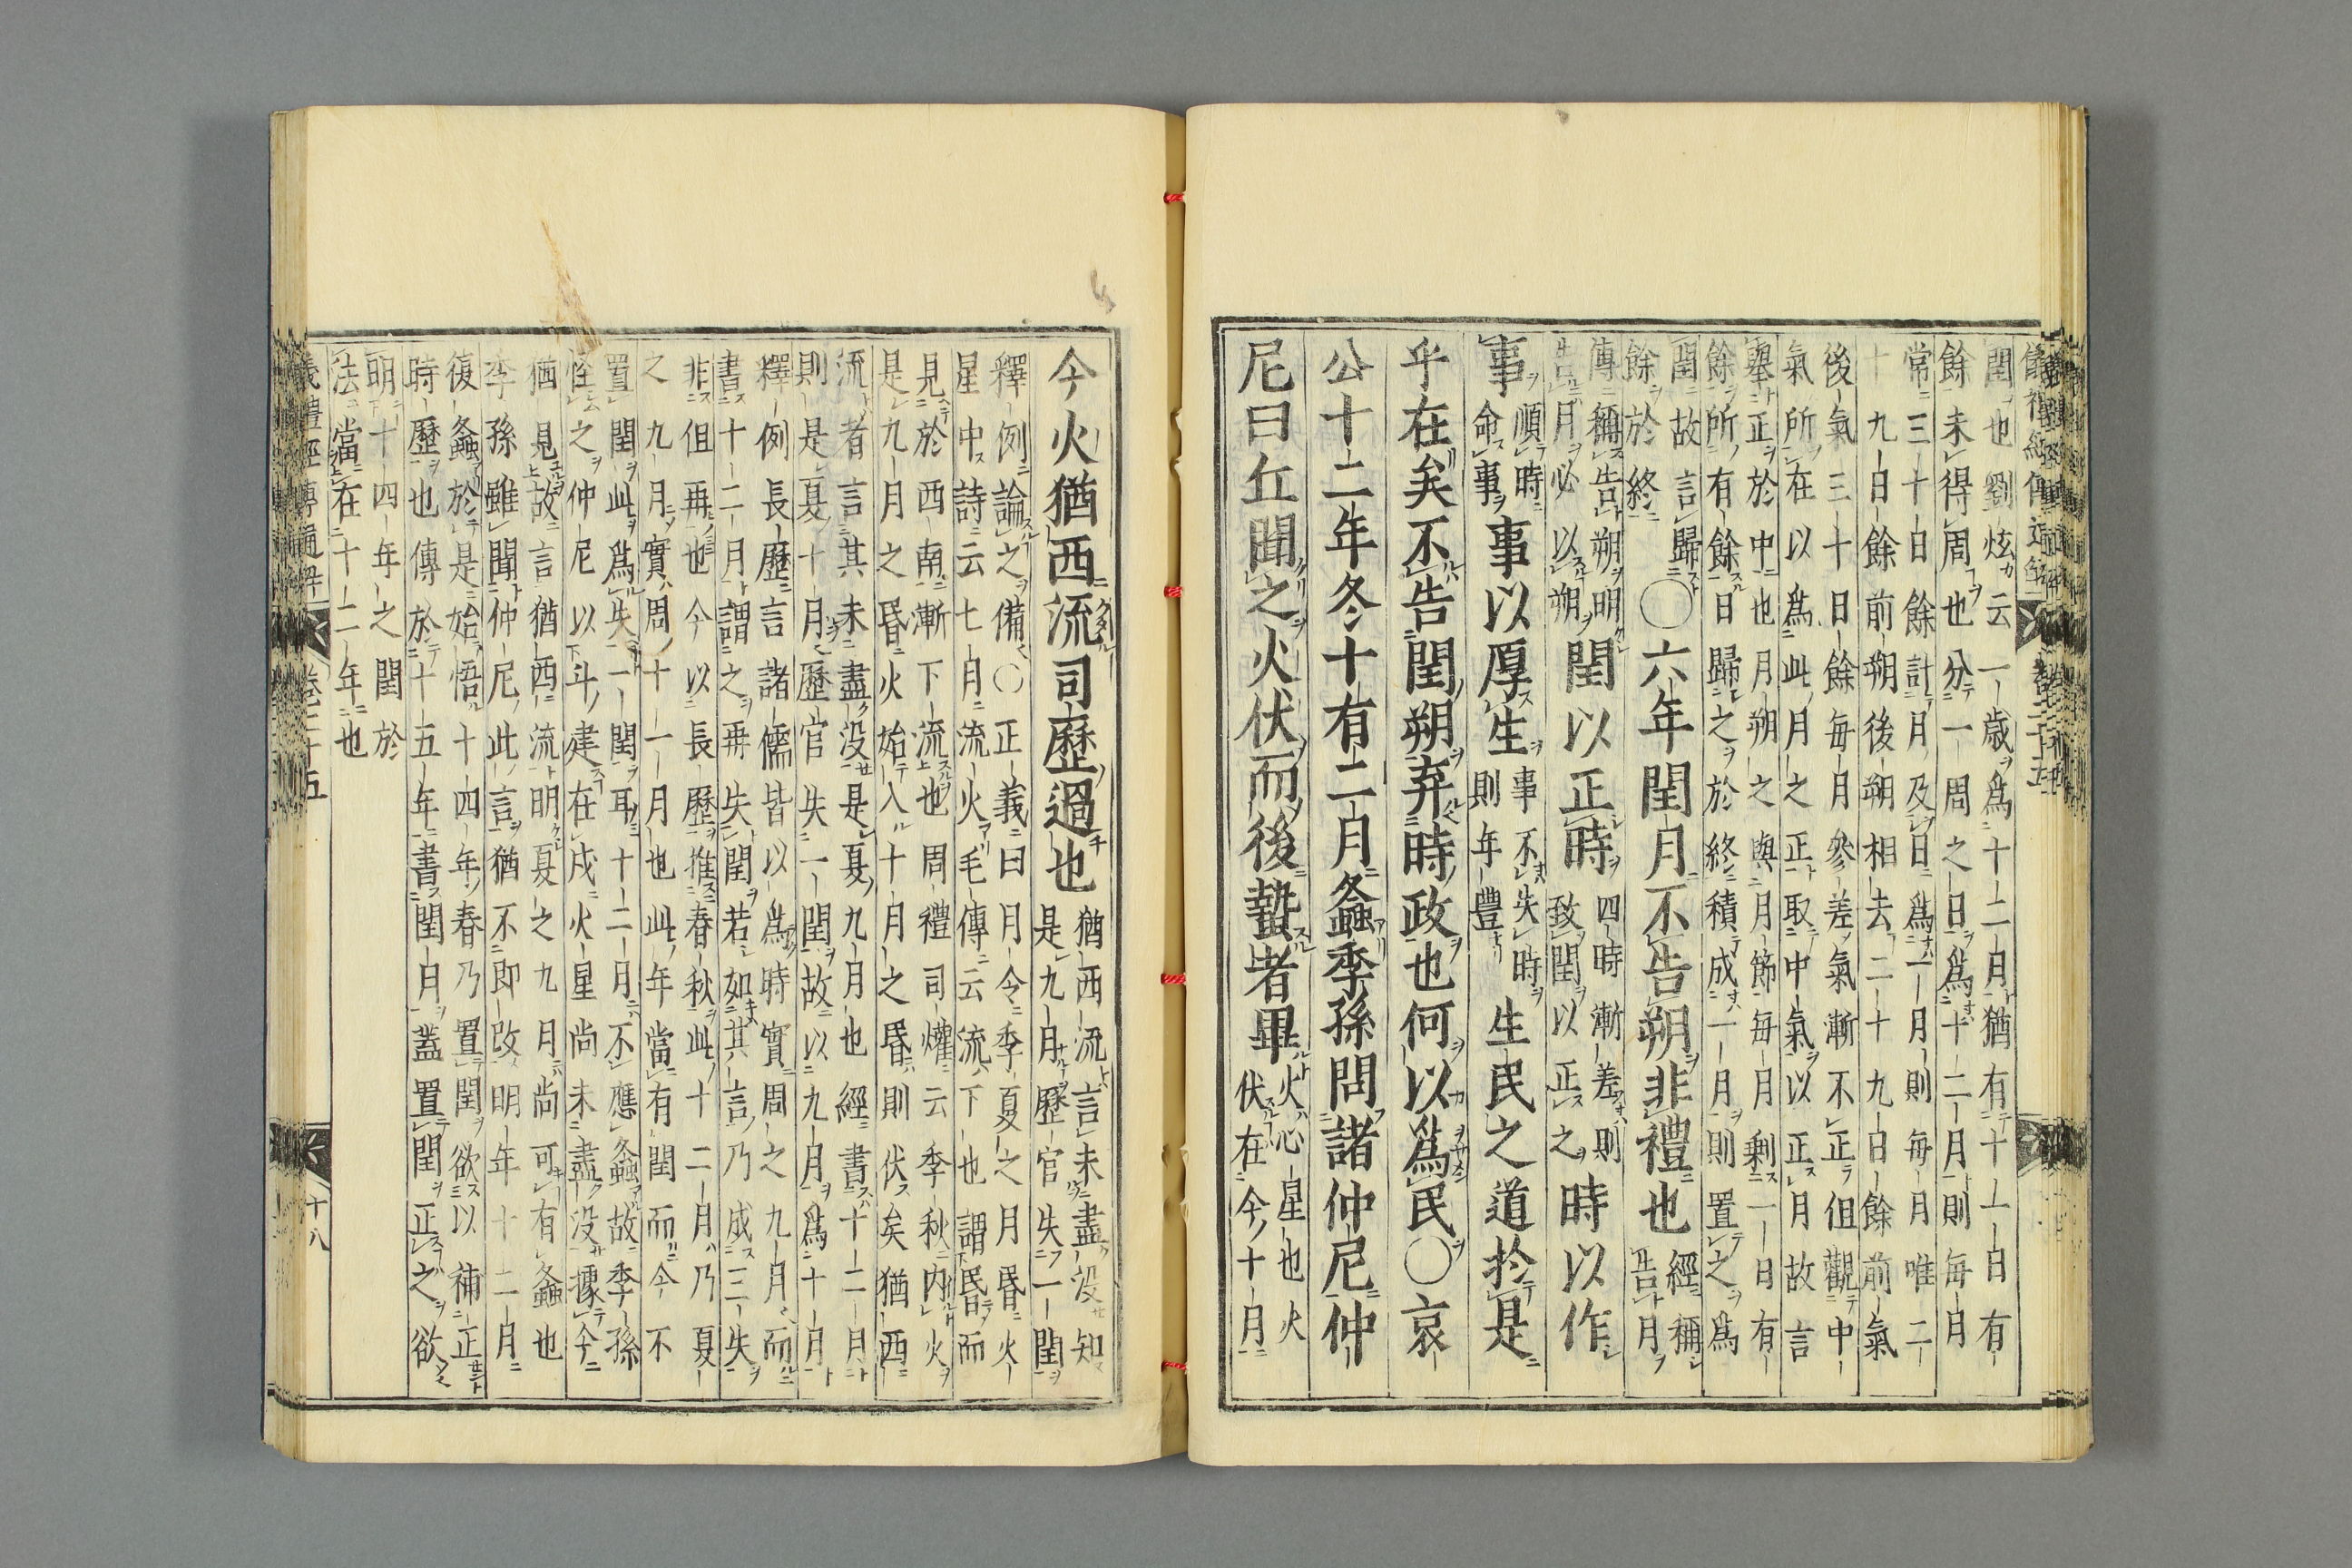 閏也劉炫云一歳爲十二月猶有十一日有
餘未得周也分一周之日爲十二月則每月
常三十日餘計月及日爲一月則每月唯二
十九日餘前朔後朔相去二十九日餘前氣
後氣三十日餘每月參差氣漸不正但觀中
氣所在以爲此月之正取中氣以正月故言
舉正於中也月朔之與月節每月剩一日有
餘所有餘日歸之於終積成一月則置之爲
閏故言歸
餘於終
〇六年閏月不告朔非禮也
經稱
告月
傳稱告朔明
告月必以朔
閏以正時
四時漸差則
致閏以正之
時以作
事
順時
命事
事以厚生
事不失時
則年豐
生民之道於是
乎在矣不告閏朔弃時政也何以爲民〇哀
公十二年冬十有二月螽季孫問諸仲尼仲
尼曰丘聞之火伏而後蟄者畢
火心星也火
伏在今十月
今火猶西流司歷過也
猶西流言未盡没知
是九月歷官失一閏
釋例論之備〇正義曰月令季夏之月昏火
星中詩云七月流火毛傳云流下也謂昏而
見於西南漸下流也周禮司爟云季秋内火
是九月之昏火始入十月之昏則伏矣猶西
流者言其未盡没是夏九月也經書十二月
則是夏十月歷官失一閏故以九月爲十月
釋例長歷言諸儒皆以爲時實周之九月而
書十二月謂之再失閏若如其言乃成三失
非但再也今以長歷推春秋此十二月乃夏
之九月實周十一月也此年當有閏而今不
置閏此爲失一閏耳十二月不應螽故季孫
怪之仲尼以斗建在戌火星尚未盡没據今
猶見故言猶西流明夏之九月尚可有螽也
季孫雖聞仲尼此言猶不即改明年十二月
復螽於是始悟十四年春乃置閏欲以補正
時歷也傳於十五年書閏月蓋置閏正之欲
明十四年之閏於
法當在十二年也
義禮經傳通解
卷二十五
十八